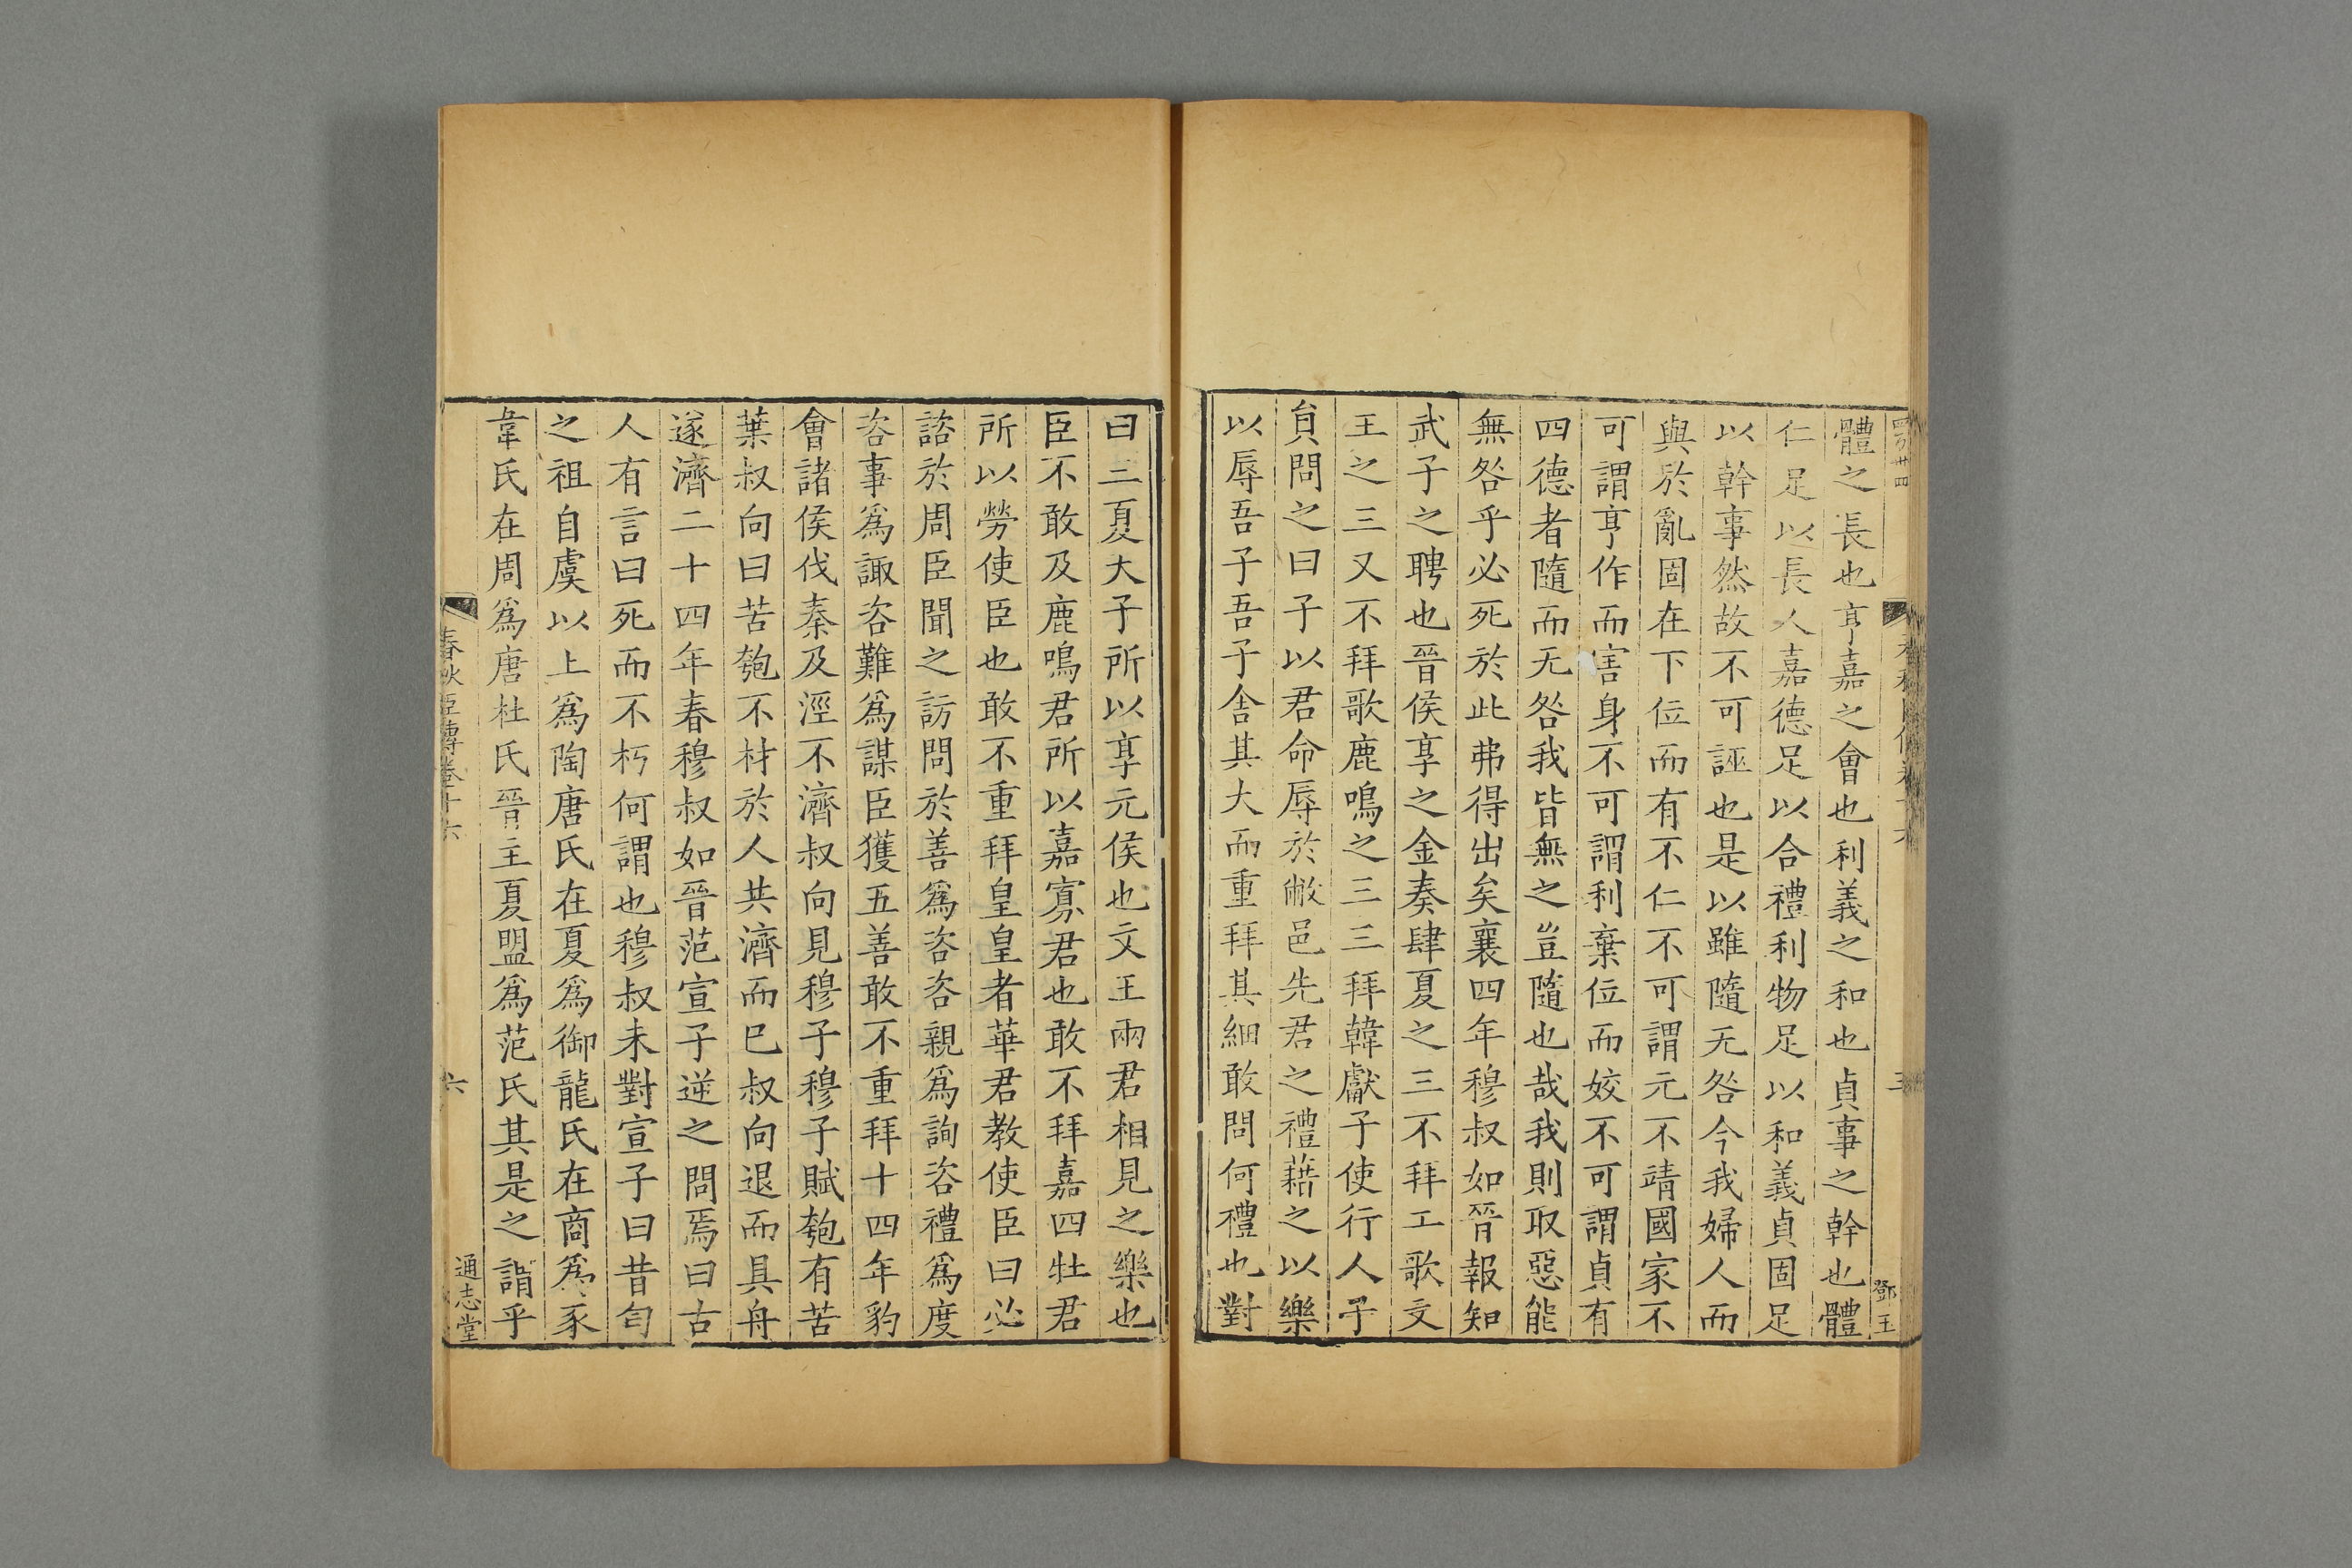 體之長也亨嘉之會也利義之和也貞事之幹也體
仁足以長人嘉德足以合禮利物足以和義貞固足
以幹事然故不可誣也是以雖隨无咎今我婦人而
與於亂固在下位而有不仁不可謂元不靖國家不
可謂亨作而害身不可謂利棄位而姣不可謂貞有
四德者隨而无咎我皆無之豈隨也哉我則取惡能
無咎乎必死於此弗得出矣襄四年穆叔如晉報知
武子之聘也晉侯享之金奏肆夏之三不拜工歌文
王之三又不拜歌鹿鳴之三三拜韓獻子使行人子
貟問之曰子以君命辱於敝邑先君之禮藉之以樂
以辱吾子吾子舍其大而重拜其細敢問何禮也對
鄧玉
曰三夏大子所以享元侯也文王兩君相見之樂也
臣不敢及鹿鳴君所以嘉寡君也敢不拜嘉四牡君
所以勞使臣也敢不重拜皇皇者華君教使臣曰必
諮於周臣聞之訪問於善爲咨咨親爲詢咨禮爲度
咨事爲諏咨難爲謀臣獲五善敢不重拜十四年豹
會諸侯伐秦及涇不濟叔向見穆子穆子賦匏有苦
葉叔向曰苦匏不材於人共濟而巳叔向退而具舟
遂濟二十四年春穆叔如晉范宣子逆之問焉曰古
人有言曰死而不朽何謂也穆叔未對宣子曰昔匄
之祖自虞以上爲陶唐氏在夏爲御龍氏在商爲豕
韋氏在周爲唐杜氏晉主夏盟爲范氏其是之謂乎
春秋臣傳卷十六
六
通志堂